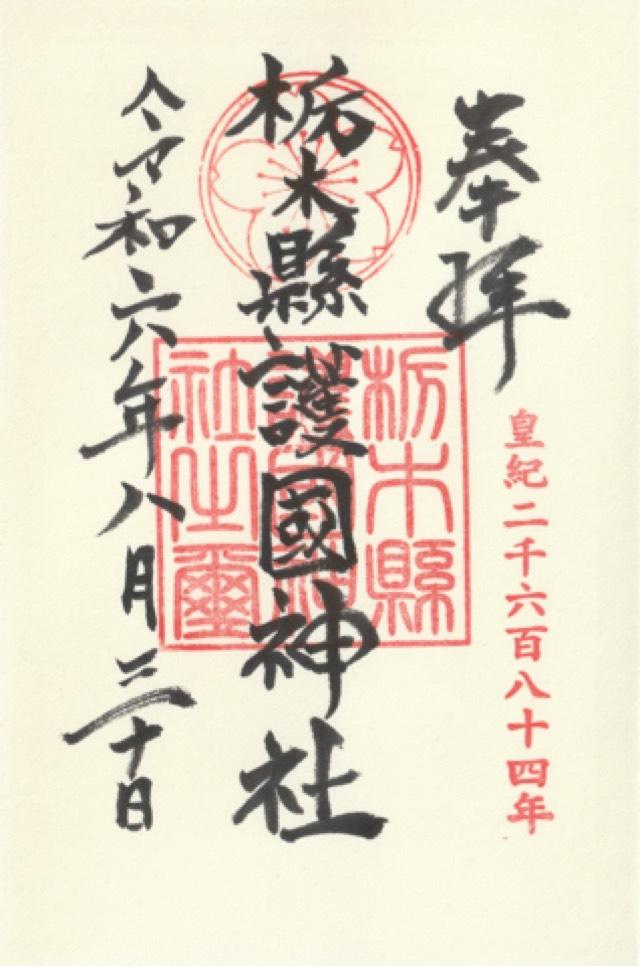 奉拝
皇紀二千六百八十四年
栃木縣護國神社
栃木縣
護國神
社之璽
令和六年八月三十日